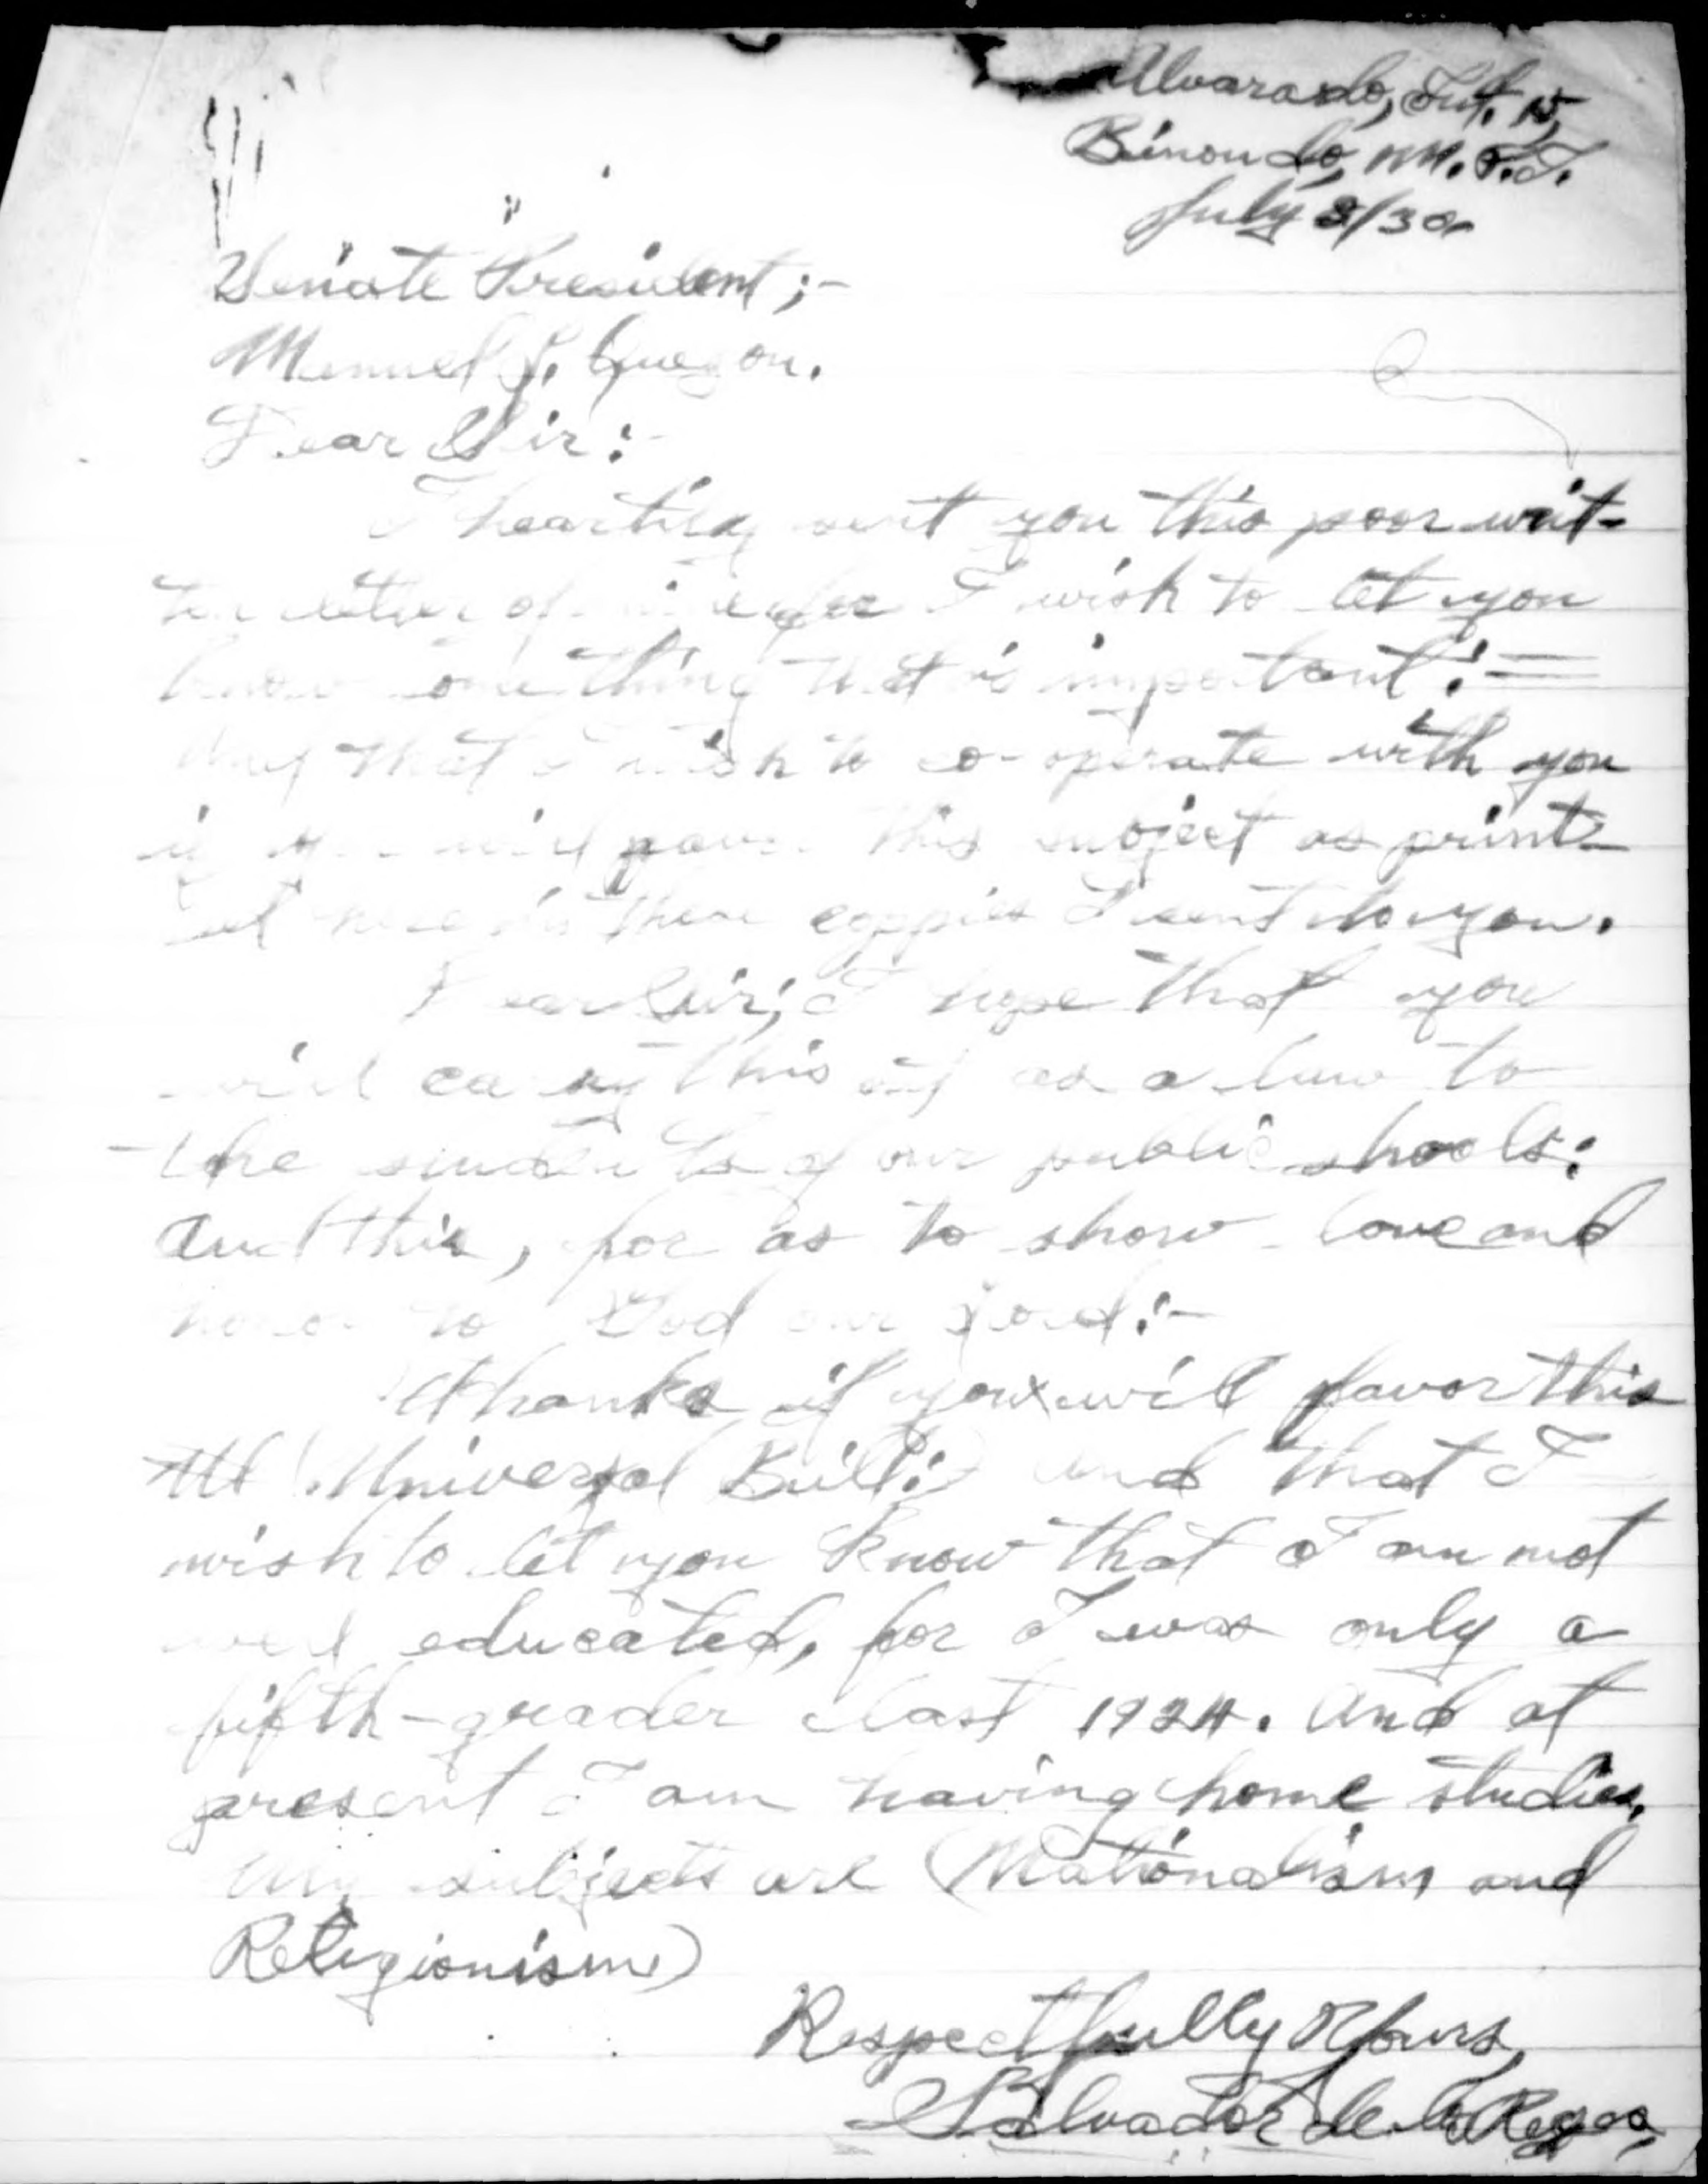 Alvarado, Int. 15,
Binondo, M. P.I.
July 8/30.
Senate President;-
Manuel L. Quezon.
Dear Sir:-
I heartily sent you this poor writ-
ten letter of for I wish to let you
know one thing that is important:=
that I wish to co-operate with you
if you will favor this subject as print-
ed here in these coppies I sent to you.
Dear Sir; I hope that you
will carry this out as a law to
the students of our public shools:
And this, for as to show love and
honor to God our Lord:-
Thanks if you will favor this
Universal Bill: and that I
wish to let you know that I am not
well educated, for I was only a
fifth-grader last 1924. And at
present I am having home studies.
My subjects are (Nationalism and
Religionism)
Respectfully Yours,
Salvador de los Reyes,